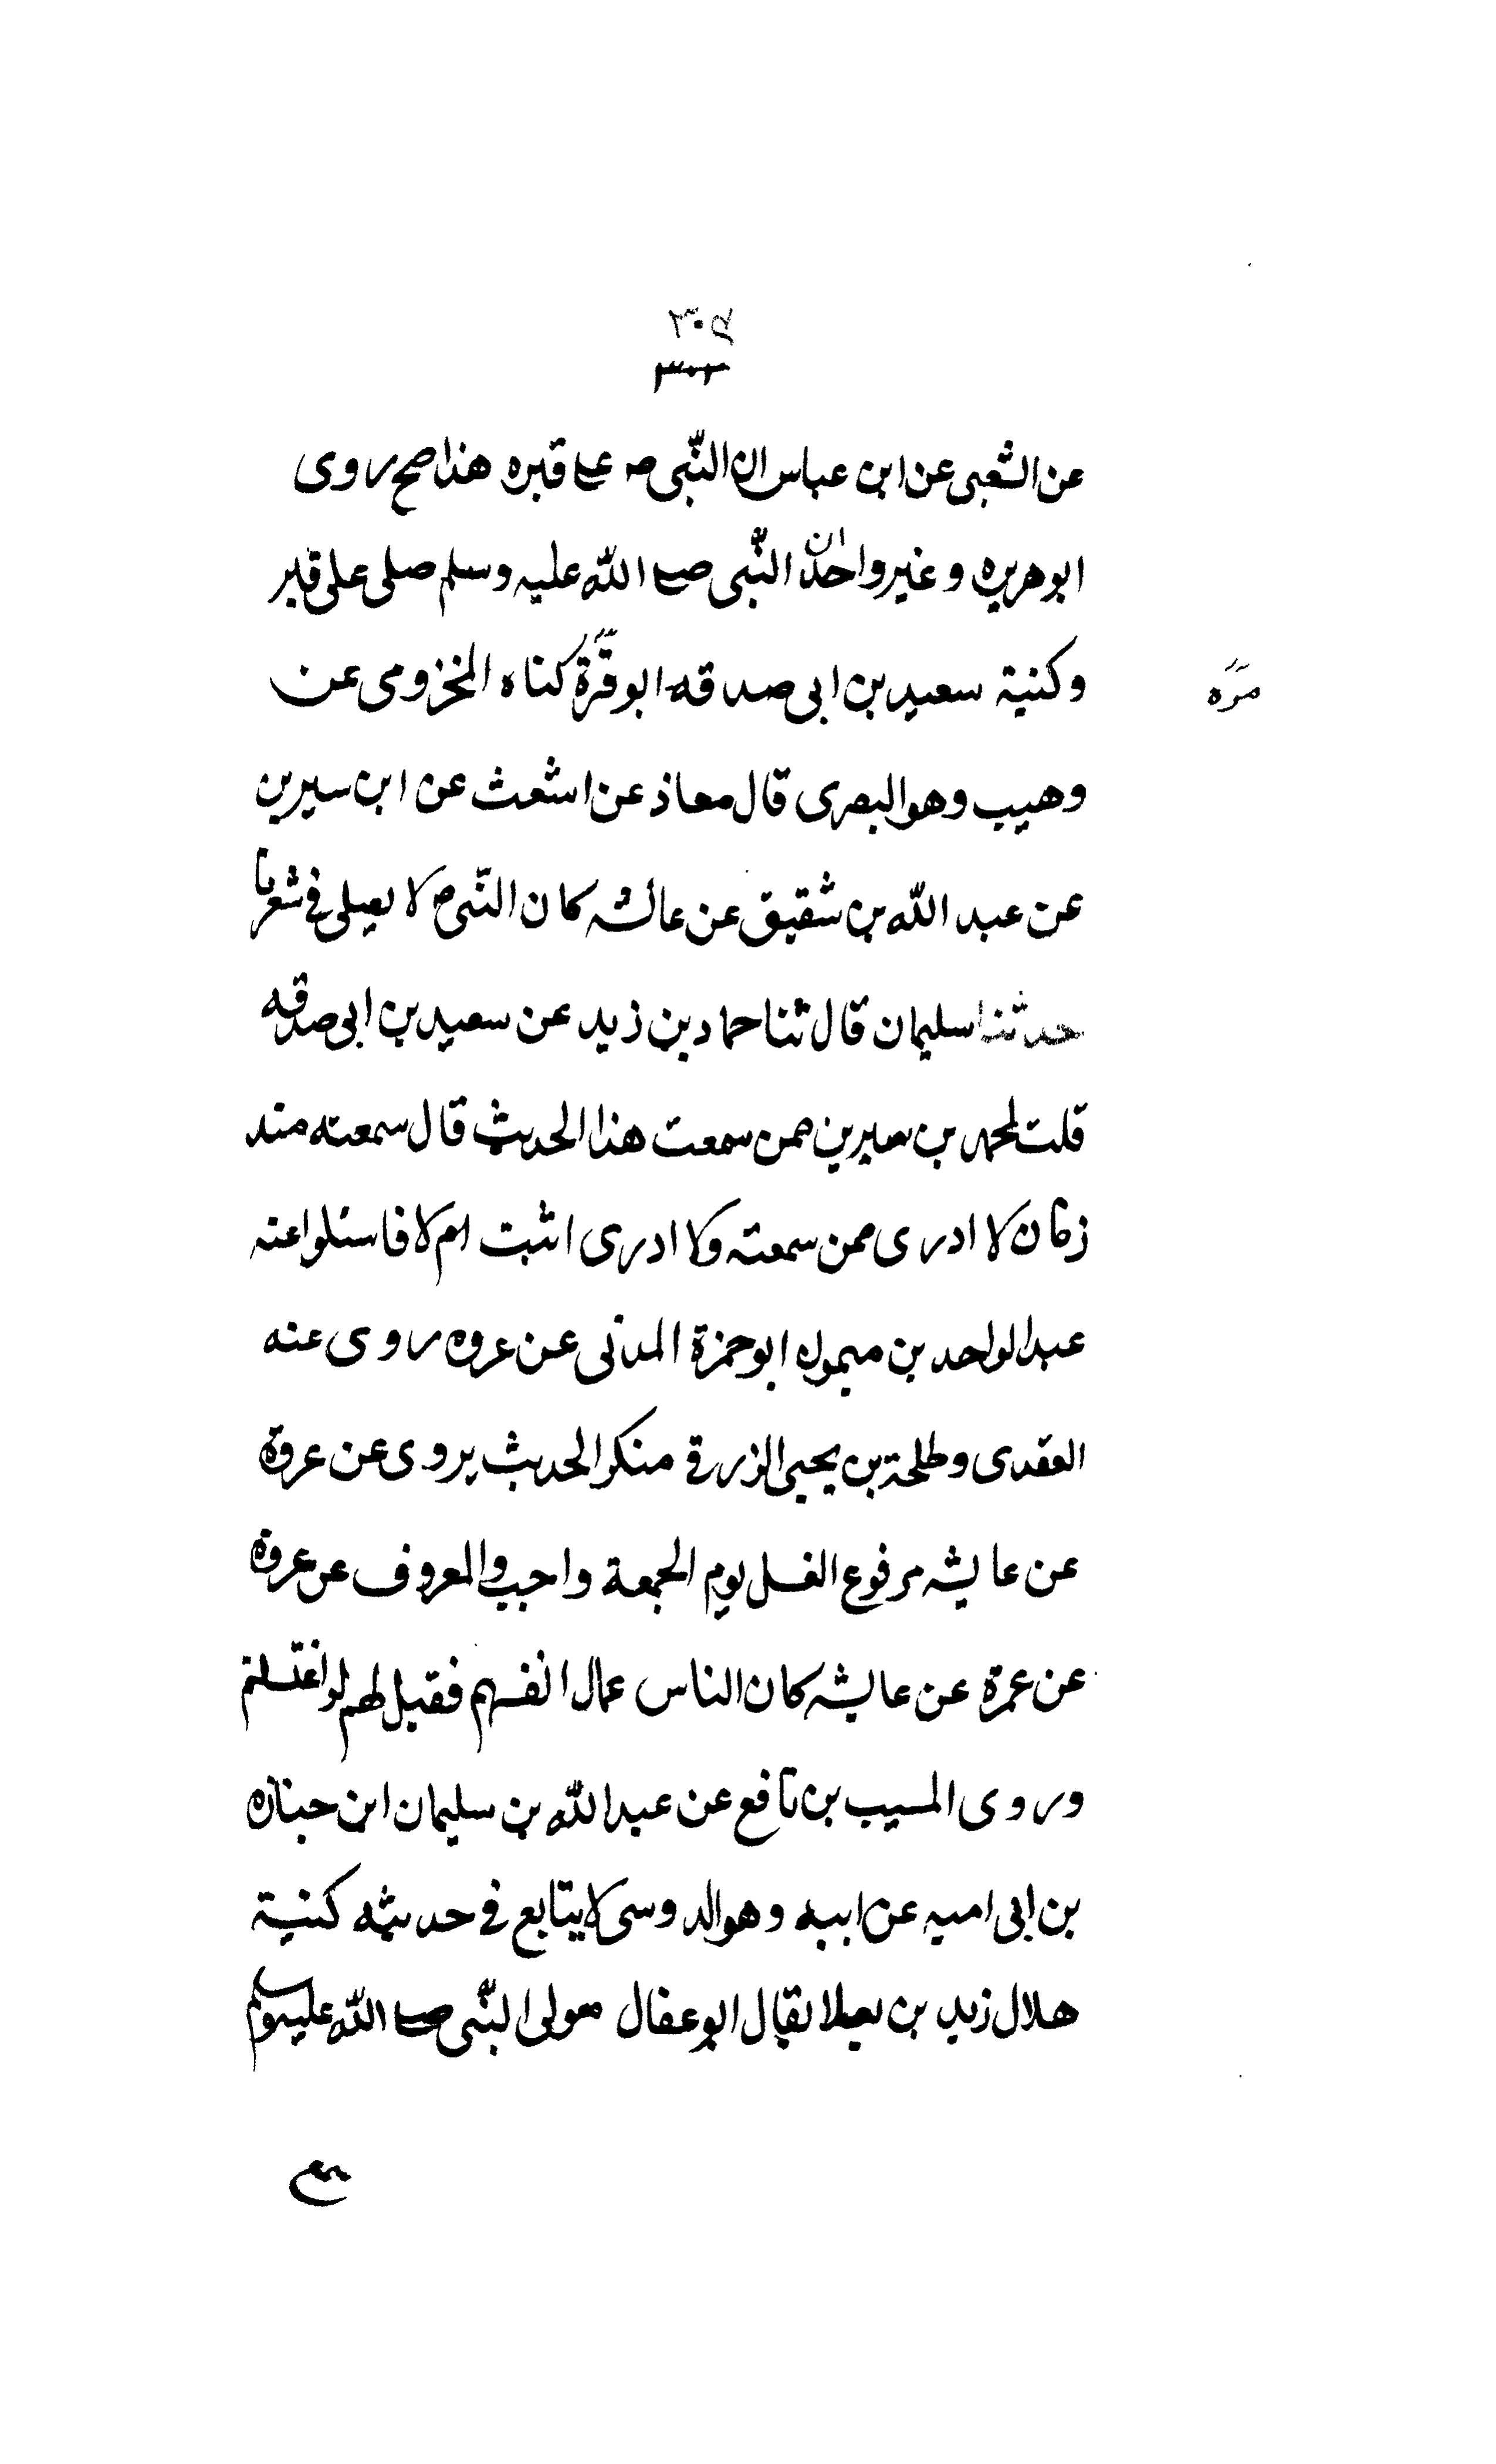 ٣٠٩
٣٠٢
عن الشعبى عن ابن عباس ان النبى صـ على قبره هذا صح روى
ابوهريره و غير واحد ان النبى صلى الله عليه وسلم صلى على قبر
وكنية سعيد بن ابى صدقه ابو قرة كناه المخزومى عن
مره
وهيب وهو البصرى قال معاذ عن اشعث عن ابن سيرين
عن عبد الله بن شقيق عن عائشه كان النبى ص لا يصلى فى شعرنا
حدثنا سليمان قال ثنا حماد بن زيد عن سعيد بن ابى صدقه
قلت لمحمد بن سيرين ممن سمعت هذا الحديث قال سمعته منذ
زمان لا ادرى ممن سمعته ولا ادرى اثبت ام لا فاسئلوا عنه
عبد الواحد بن ميمون ابو حمزة المدنى عن عروه روى عنه
العقدى وطلحة بن يحيى الزرقى منكر الحديث يروى عن عروة
عن عايشه مرفوع الغسل يوم الجمعة واجب والمعروف عن عروة
عن عمرة عن عايشه كان الناس عمال انفسهم فقيل لهم لو اغتسلتم
وروى المسيب بن نافع عن عبد الله بن سليمان ابن جنازه
بن ابى اميه عن ابيه وهو الدوسى لا يتابع فى حديثه كنية
هلال زيد بن يقال ابو عقال مولى النبى صلى الله عليه وسلم